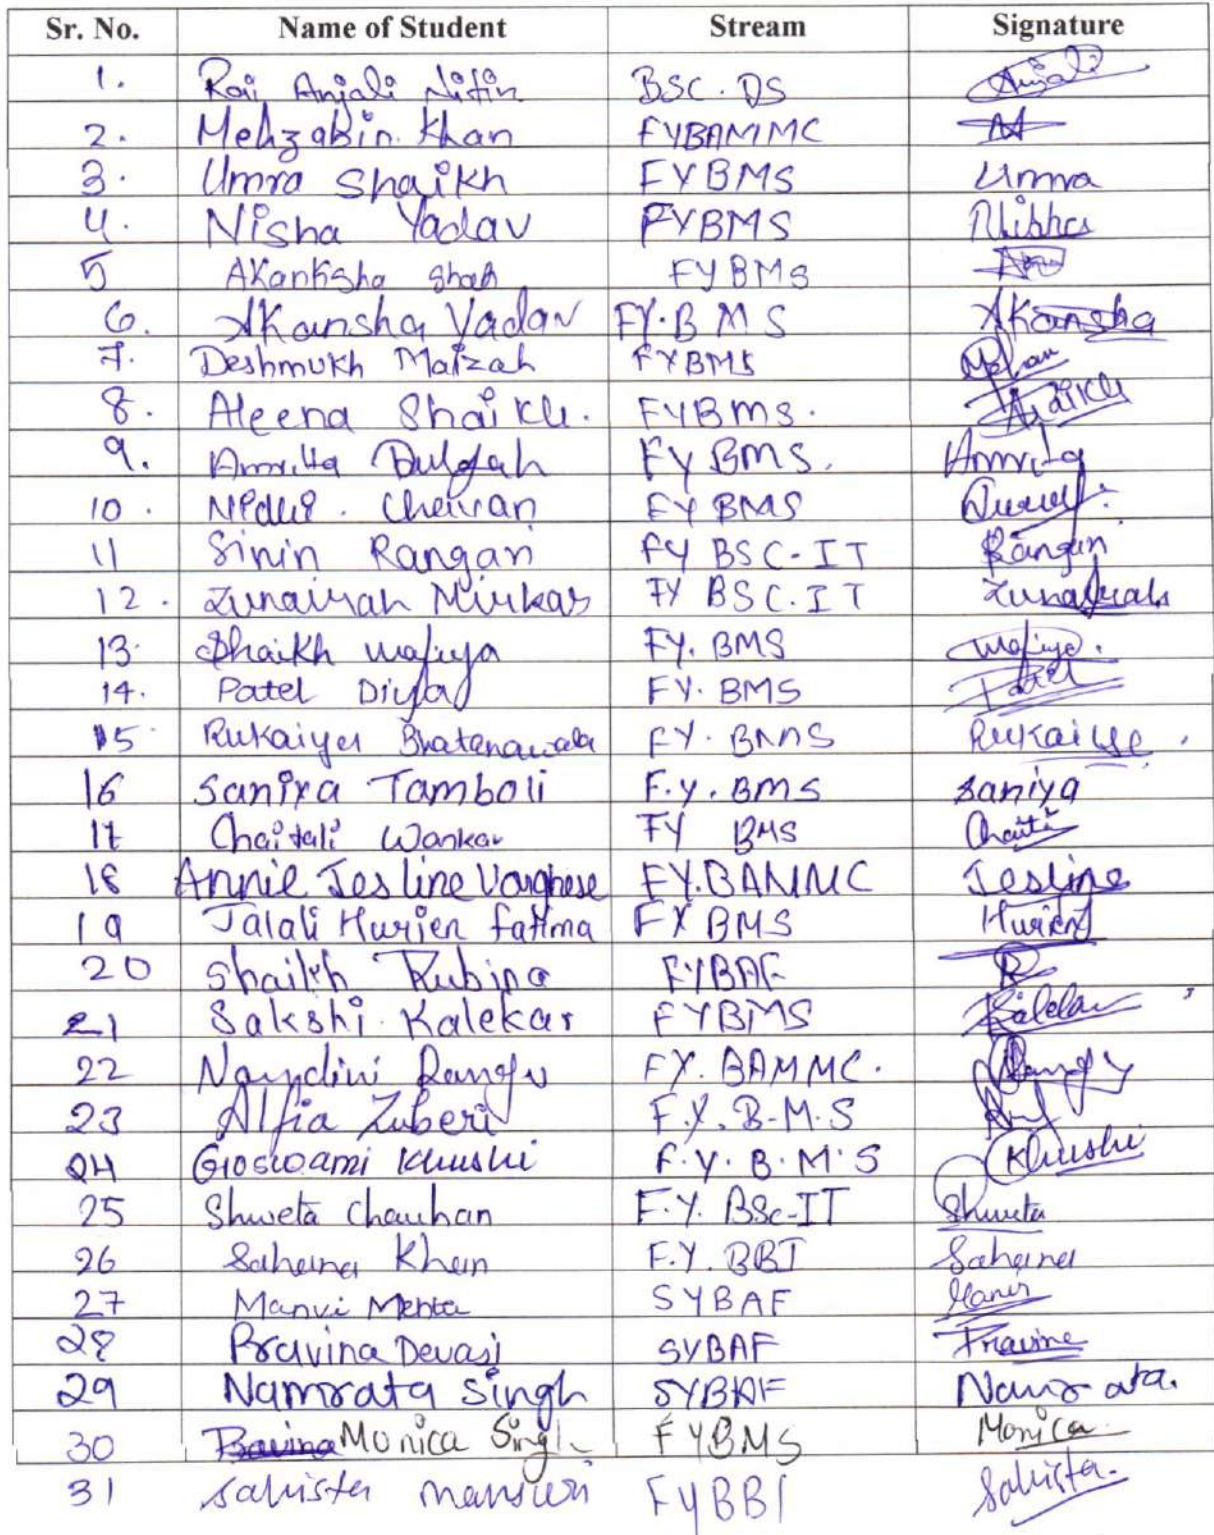 Sr. No. Name of Student Stream Signature
1. Rai Anjali Nitin BSC. DS Anjali
2. Mehzabin Khan FYBAMMC
3. Umra Shaikh FYBMS Umra
4. Nisha Yadav FYBMS Nisha
5 Akanksha Shah FYBMS
6. Akansha Yadav FY.BMS Akansha
7. Deshmukh Maizah FYBMS
8. Aleena Shaikh. FYBMS. Shaikh
9. Amrita FYBMS. Amrita
10. Nidhi. FY BMS
11 Sinin Rangari FY BSC-IT Rangari
12. Zunairah Mirkar FY BSC.IT Zunairah
13. Shaikh Wafiya FY. BMS Wafiya.
14. Patel Diya FY. BMS Patel
15 Rukaiya Bhatanawala FY. BMS Rukaiya.
16 Saniya Tamboli F.Y. BMS Saniya
17 Chaitali Wankar FY BMS Chaitali
18 Annie Jesline Varghese FY.BAMMC Jesline
19 Jalali Hurien Fatima FY BMS Hurien
20 Shaikh Rubina FYBAF R
21 Sakshi Kalekar FYBMS Kalekar
22 Nandini Rangu FY. BAMMC. Rangu
23 Alfia Zuberi F.Y. B.M.S
24 Goswami Khushi F.Y. B.M.S Khushi
25 Shweta Chauhan F.Y. BSc-IT Shweta
26 Sahana Khan F.Y. BBI Sahana
27 Manvi Mehta SYBAF Manvi
28 Pravina Devasi SYBAF Pravina
29 Namrata Singh SYBAF Namrata.
30 Monica Singh FYBMS Monica
31 Sahista Mansuri FYBBI Sahista.